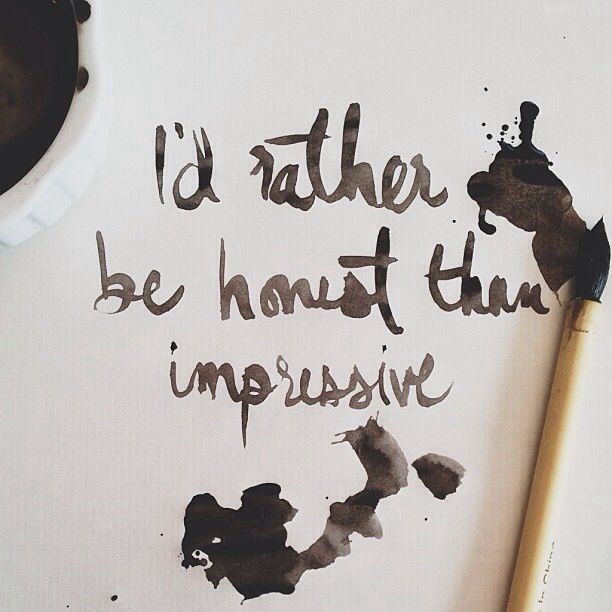 I'd rather
be honest than
impressive
in China